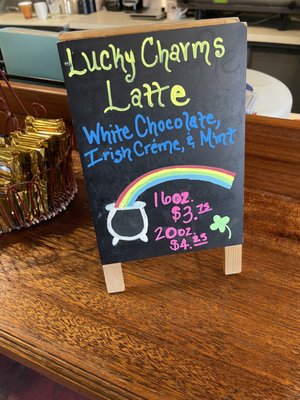 Lucky Charms
Latte
White Chocolate,
Irish Créme, & Mint
16oz.
$3.75
20oz.
$4.25